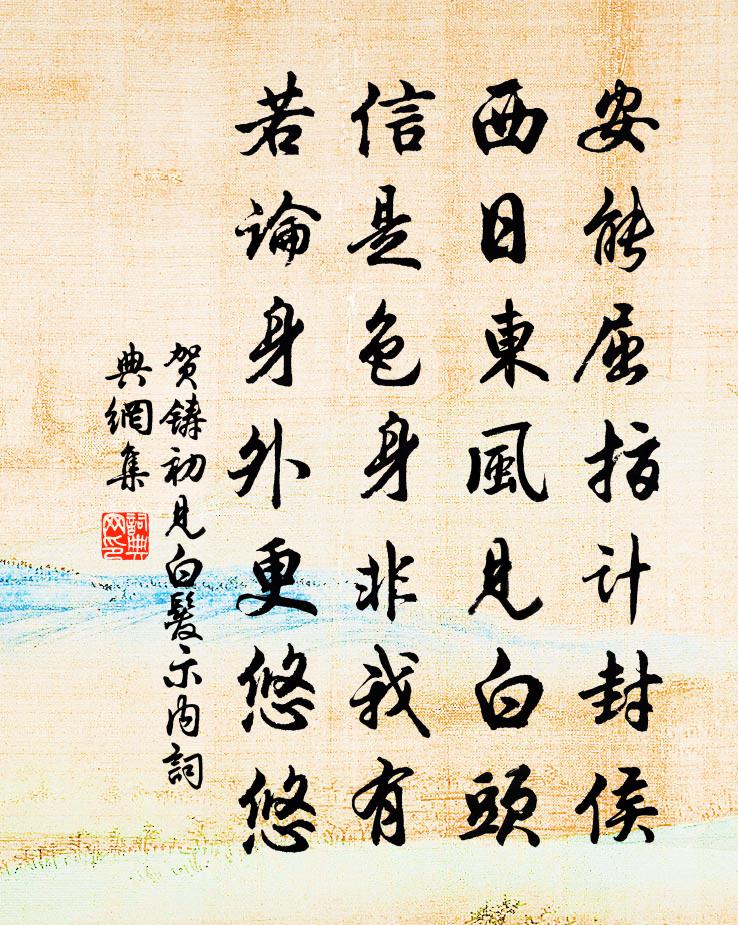 安能屈指計封侯
西日東風見白頭
信是色身非我有
若論身外更悠悠
賀鑄初見白髮示內詞
典網集
詞典網印